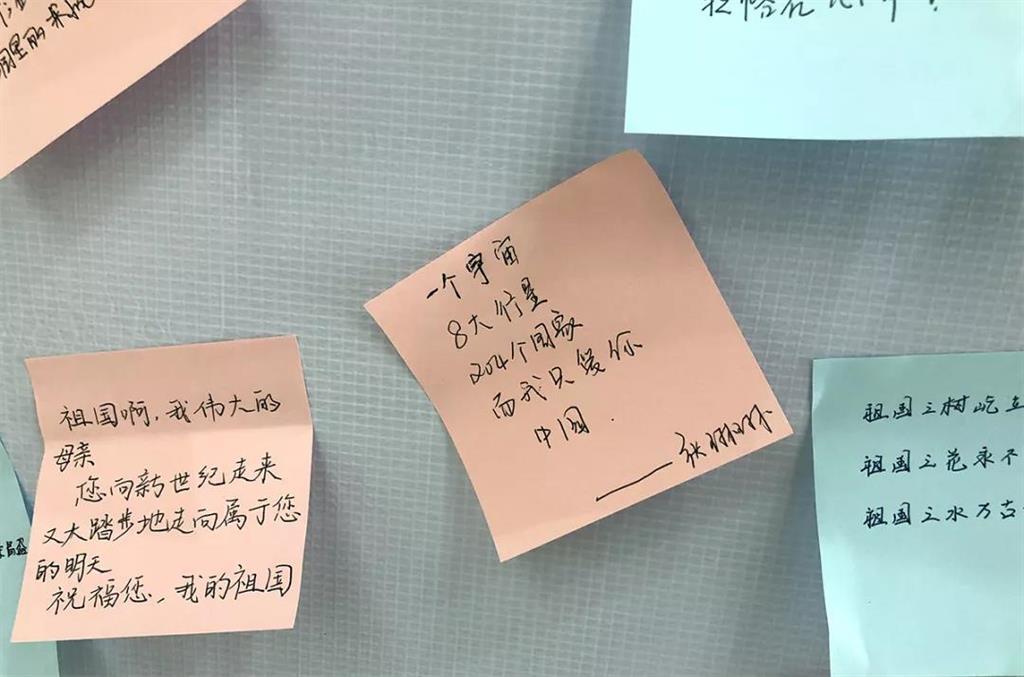 国里的
一个宇宙
8大行星
204个国家
而我只爱你
中国.
祖国啊,我伟大的
母亲
您向新世纪走来
又大踏步地走向属于您
的明天
祝福您,我的祖国
祖国之树屹立
祖国之花永不
祖国之水万古